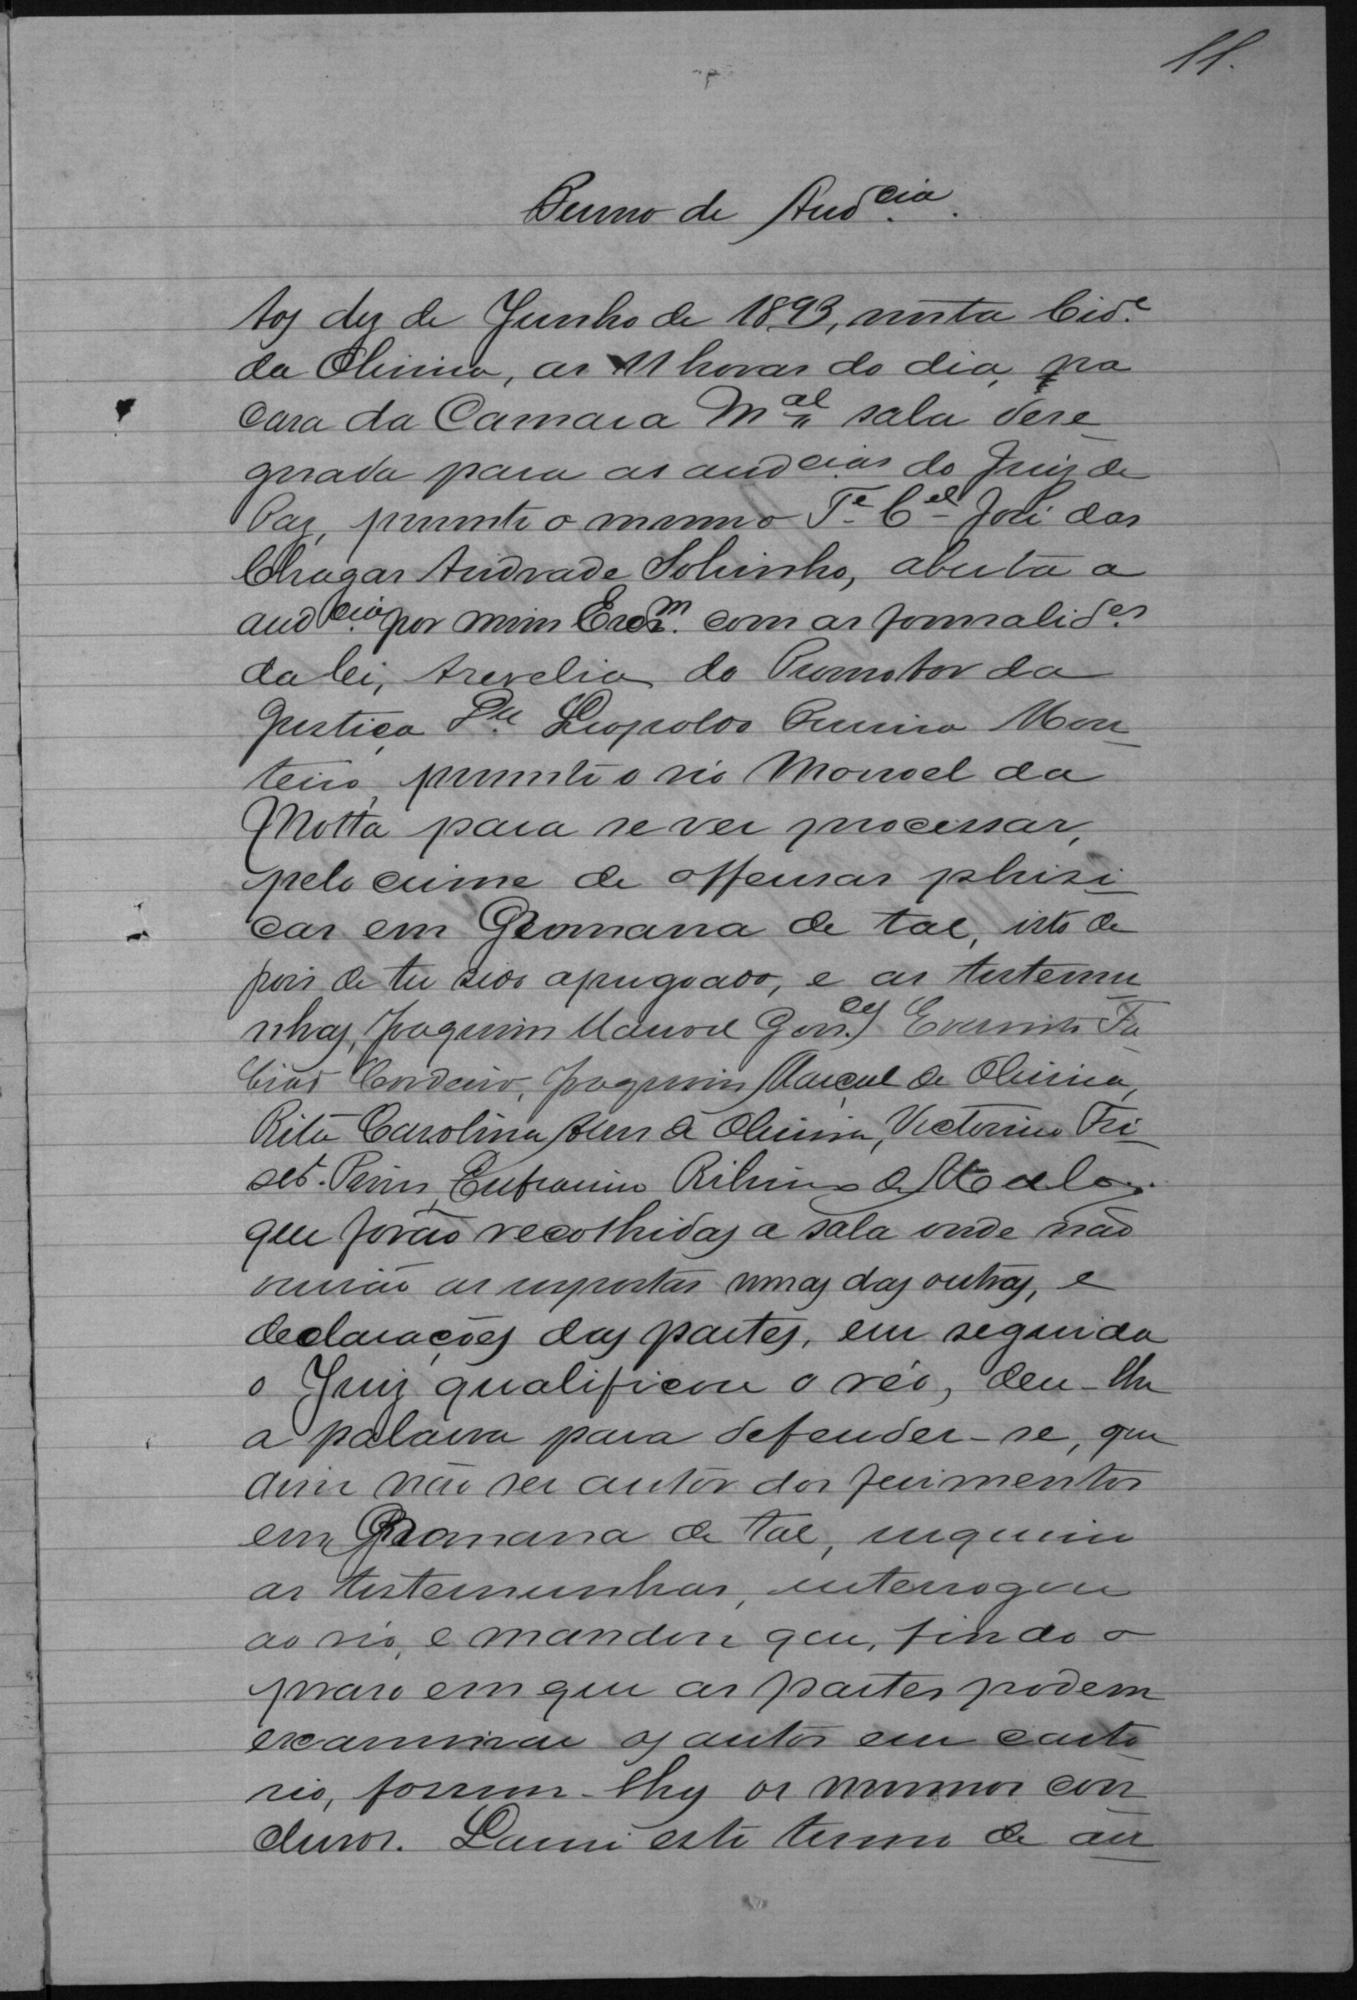 11.
Termo de Aud.cia.
Aos dez de Junho de 1893, nesta Cid.e
da Oliveira, as 11 horas do dia, na
casa da Camara M.al sala desi
gnada para as aud.cias do Juiz de
Paz, presente o mesmo T.e C.el José das
Chagas Andrade Sobinho, aberta a
aud.cia por mim Escr.m com as formalid.es
da lei, arevelia do Promotor da
Justiça P.e Leopoldo Pereira Mon
teiro, presente o réo Manoel da
Motta para se ver processar,
pelo crime de offensas phisi
cas em Romana de tal, isto de
pois de ter sido apregoado, e as testemu
nhas, Joaquim Manoel Gon.es Evaristo Fa
Cordeiro, Joaquim Marçal de Oliveira,
Rita Carolina Alves de Oliveira, Victorino
Ribeiro de
que forão recolhidas a sala onde não
ouvião as respostas umas das outras, e
declarações das partes, em seguida
o Juiz qualificou o réo, deu-lhe
a palavra para defender-se, que
disse não ser autor dos ferimentos
em Romana de tal, inqueriu
as testemunhas, interrogou
ao réo, e mandou que, findo o
praso em que as partes podem
examinar os autos em carto
rio, fossem-lhes os mesmos con
clusos. Lavrei este termo de au